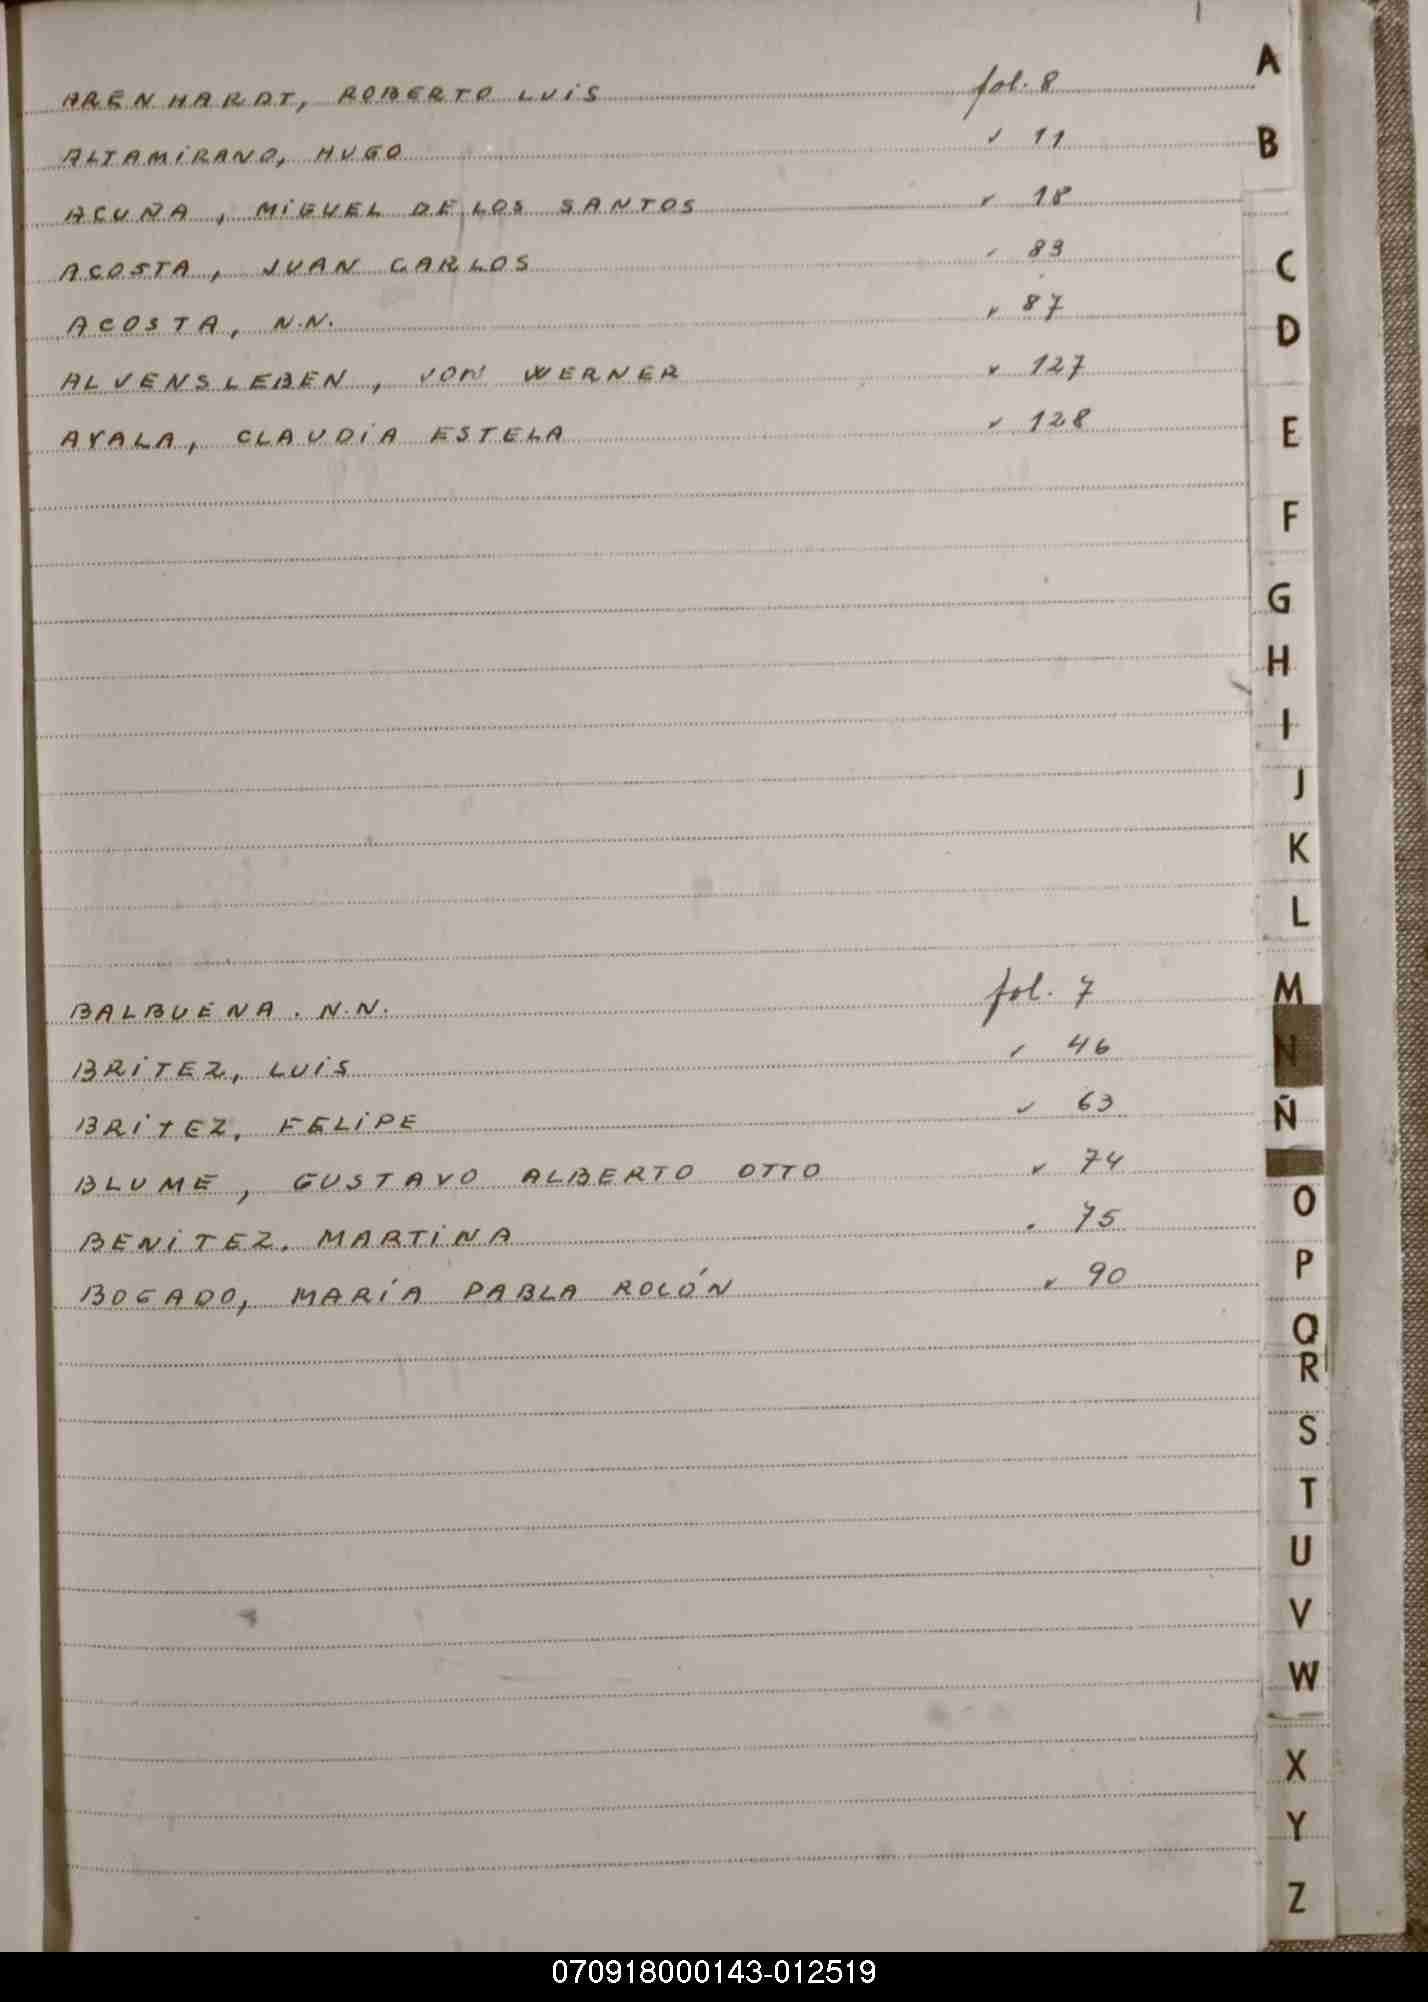 ARENHARDT, ROBERTO LUIS fol. 8
ALTAMIRANO, HUGO ✓ 11
ACUÑA, MIGUEL DE LOS SANTOS ✓ 18
ACOSTA, JUAN CARLOS ✓ 83
ACOSTA, N.N. ✓ 87
ALVENSLEBEN, VON WERNER ✓ 127
AYALA, CLAUDIA ESTELA ✓ 128
BALBUENA. N.N. fol. 7
BRITEZ, LUIS ✓ 46
BRITEZ, FELIPE ✓ 63
BLUME, GUSTAVO ALBERTO OTTO ✓ 74
BENITEZ, MARTINA ✓ 75
BOGADO, MARÍA PABLA ROLÓN ✓ 90
A
B
C
D
E
F
G
H
I
J
K
L
M
N
Ñ
O
P
Q
R
S
T
U
V
W
X
Y
Z
070918000143-012519